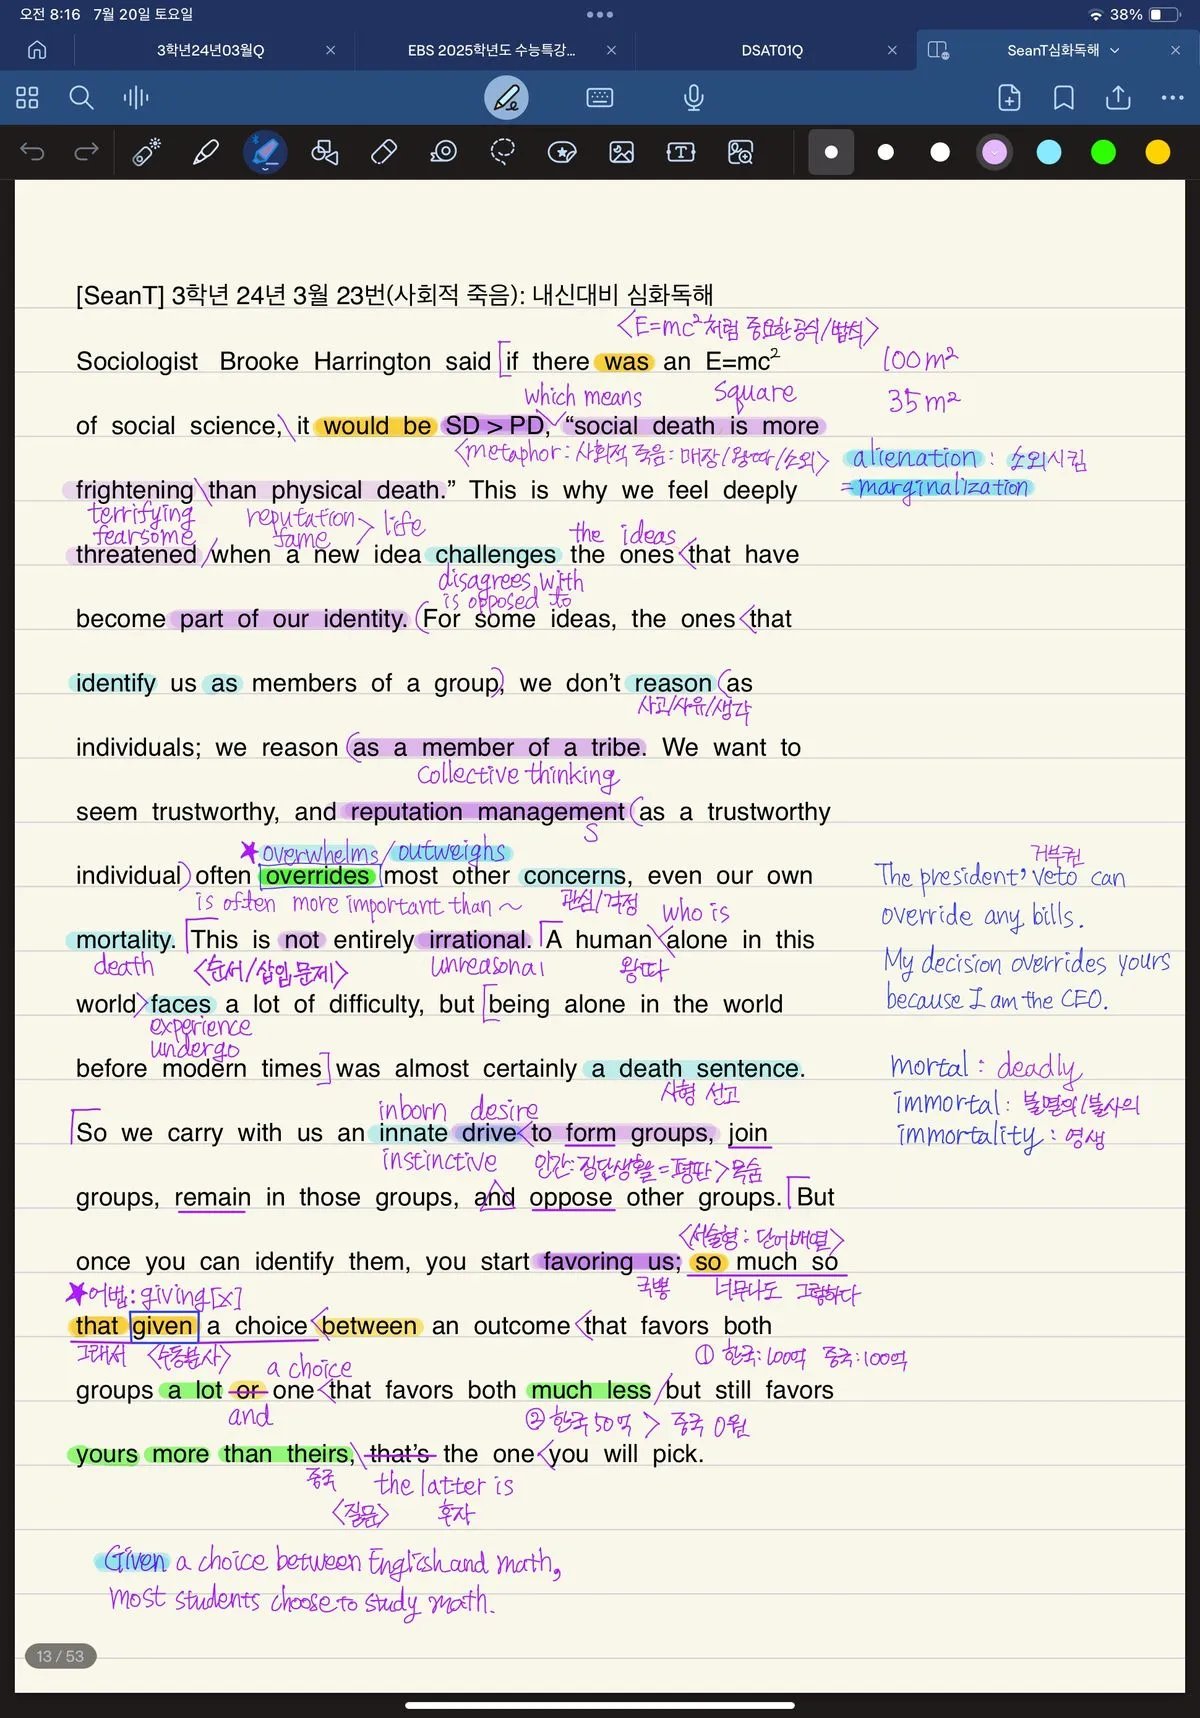 오전 8:16 7월 20일 토요일
38%
3학년24년03월Q
EBS 2025학년도 수능특강...
DSAT01Q
SeanT심화독해
[SeanT] 3학년 24년 3월 23번(사회적 죽음): 내신대비 심화독해
<E=mc²처럼 중요한 공식/법칙>
Sociologist Brooke Harrington said [if there was an E=mc²
100m²
which means square
35m²
of social science, it would be SD > PD, “social death is more
<metaphor: 사회적 죽음: 매장/왕따/소외>
alienation : 소외시킴
frightening than physical death.” This is why we feel deeply
=marginalization
terrifying reputation > life
fearsome fame the ideas
threatened when a new idea challenges the ones <that have
disagrees with
is opposed to
become part of our identity. (For some ideas, the ones <that
identify us as members of a group), we don’t reason (as
사고/사유/생각
individuals; we reason (as a member of a tribe. We want to
collective thinking
seem trustworthy, and reputation management (as a trustworthy
S
★overwhelms/outweighs
거부권
individual) often overrides most other concerns, even our own
The president's veto can
is often more important than ~ 관심/걱정 who is
override any bills.
mortality. [This is not entirely irrational. [A human alone in this
death <순서/삽입 문제> unreasonal 왕따
My decision overrides yours
world> faces a lot of difficulty, but [being alone in the world
because I am the CEO.
experience
undergo
before modern times] was almost certainly a death sentence.
mortal : deadly
사형 선고
inborn desire
immortal : 불멸의/불사의
[So we carry with us an innate drive <to form groups, join
immortality : 영생
instinctive 인간:집단생활=평판>목숨
groups, remain in those groups, and oppose other groups. [But
<서술형: 단어배열>
once you can identify them, you start favoring us; so much so
★어법: giving[x] 국뽕 너무나도 그렇하다
that given a choice <between an outcome <that favors both
그래서 <수동분사> a choice ① 한국:100억 중국:100억
groups a lot or one <that favors both much less /but still favors
and ② 한국 50억 > 중국 0원
yours more than theirs, that’s the one <you will pick.
중국 the latter is
<질문> 혼자
Given a choice between English and math,
most students choose to study math.
13 / 53